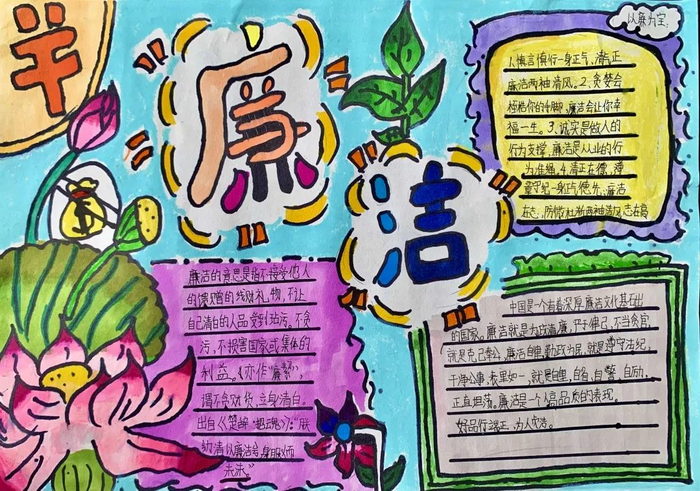 羊
廉
洁
以廉为宝
人慎言慎行一身正气,清正
廉洁两袖清风。2、贪婪会
你的手脚,廉洁会让你幸
福一生。3、诚实是做人的
行为支撑,廉洁是从业的行
为准绳。4、清正在德,
在志,两袖清风志在
廉洁的意思是指不接受他人
的馈赠的钱财礼物,不让
自己清白的人品受到玷污。不贪
污,不损害国家或集体的
利益。《亦作“廉絜”,
谓不贪财货,立身清白。
出自《楚辞·招魂》:“朕
幼清以廉洁兮,身服义而
未沬。”
中国是一个有着深厚廉洁文化基石出
的国家。廉洁就是为政清廉,严于律己,不当贪官,
就是克己奉公,廉洁自律,勤政为民,就是遵守法纪,
干净公事,表里如一,就是自律,自省,自警,自励,
正直坦荡。廉洁是一个人高品质的表现。
好品行端正,为人